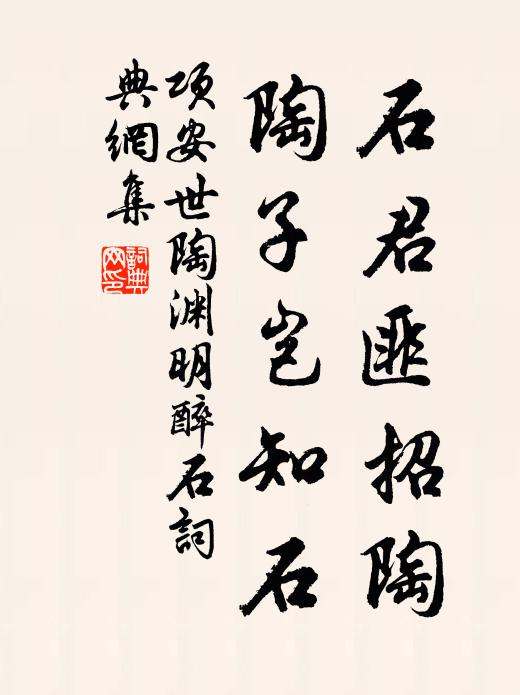 石君匪招陶
陶子岂知石
項安世陶渊明醉石詞
典網集
詞典
网印